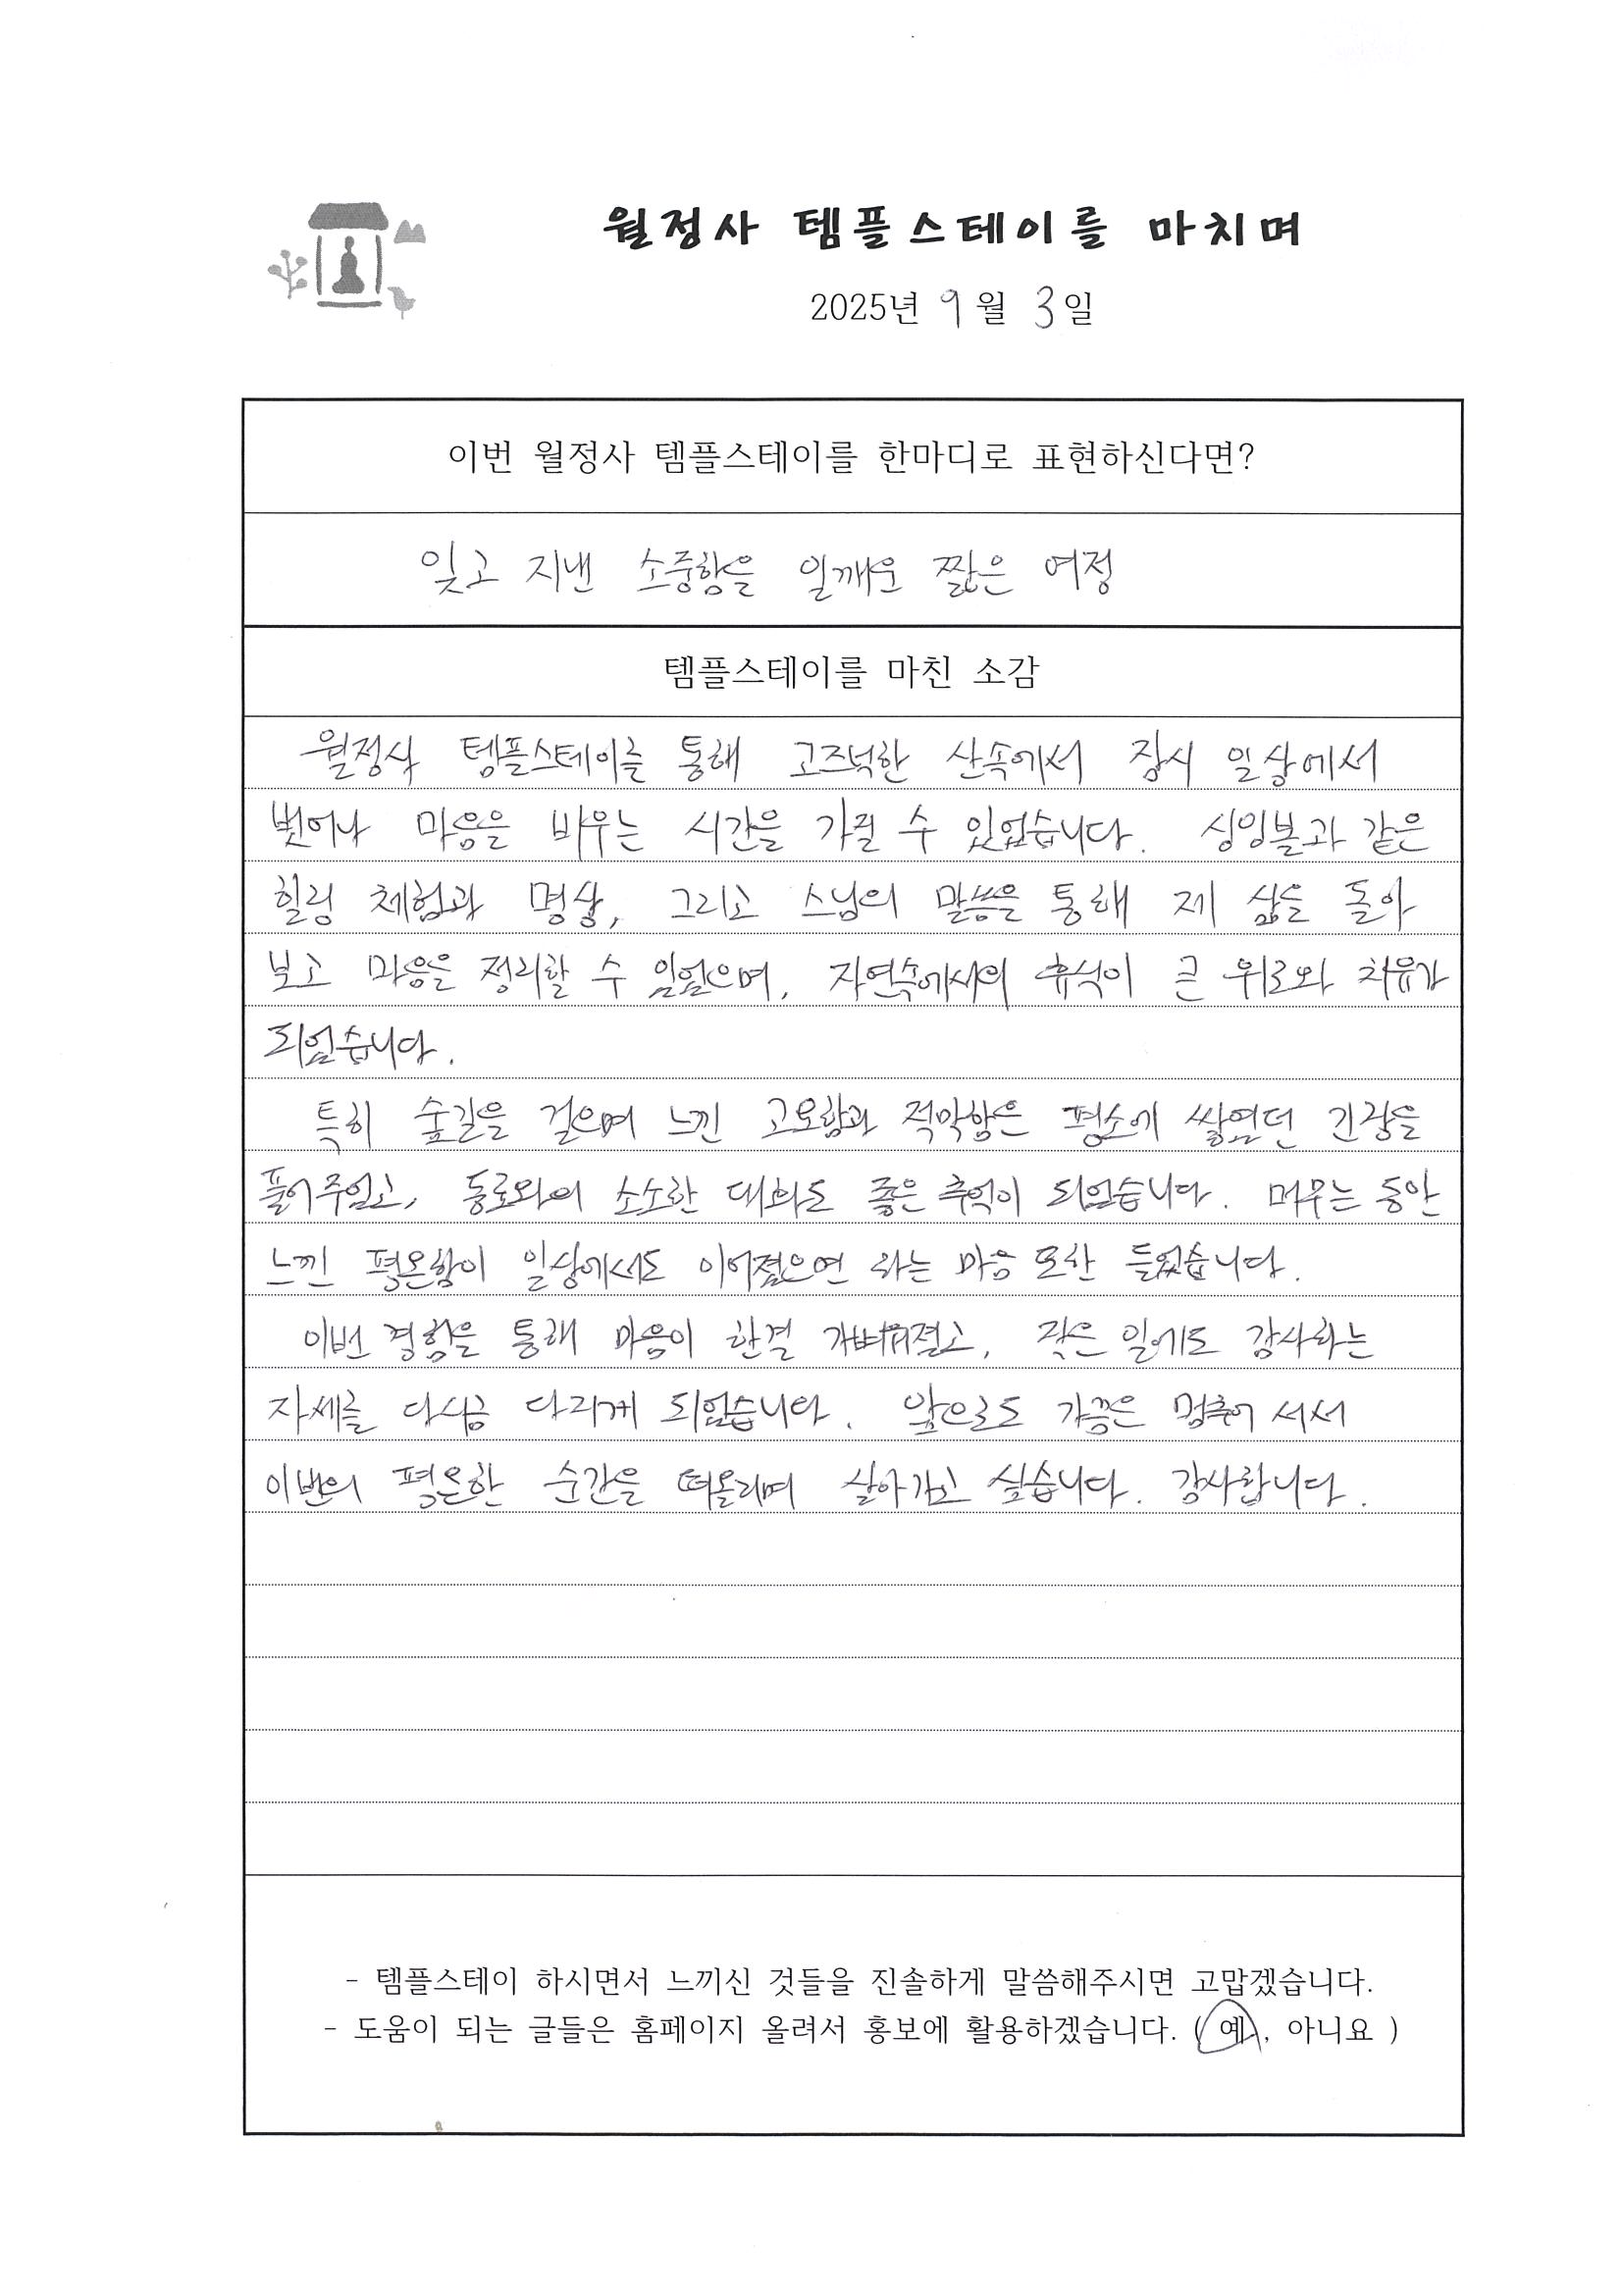 월정사 템플스테이를 마치며
2025년 9월 3일
이번 월정사 템플스테이를 한마디로 표현하신다면?
잊고 지낸 소중함을 일깨운 짧은 여정
템플스테이를 마친 소감
월정사 템플스테이를 통해 고즈넉한 산속에서 잠시 일상에서
벗어나 마음을 비우는 시간을 가질 수 있었습니다. 싱잉볼과 같은
힐링 체험과 명상, 그리고 스님의 말씀을 통해 제 삶을 돌아
보고 마음을 정리할 수 있었으며, 자연속에서의 휴식이 큰 위로와 치유가
되었습니다.
특히 숲길을 걸으며 느낀 고요함과 적막함은 평소에 쌓였던 긴장을
풀어주었고, 동료와의 소소한 대화도 좋은 추억이 되었습니다. 머무는 동안
느낀 평온함이 일상에서도 이어졌으면 하는 마음 또한 들었습니다.
이번 경험을 통해 마음이 한결 가벼워졌고, 작은 일에도 감사하는
자세를 다시금 다지게 되었습니다. 앞으로도 가끔은 멈추어 서서
이번의 평온한 순간을 떠올리며 살아가고 싶습니다. 감사합니다.
- 템플스테이 하시면서 느끼신 것들을 진솔하게 말씀해주시면 고맙겠습니다.
- 도움이 되는 글들은 홈페이지 올려서 홍보에 활용하겠습니다. ( 예 , 아니요 )